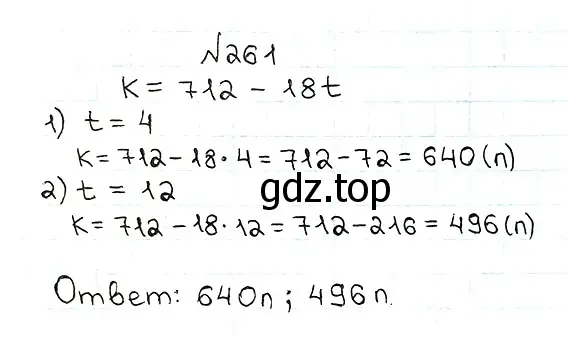 №261
K = 712 - 18t
1) t = 4
K = 712 - 18 · 4 = 712 - 72 = 640 (п)
2) t = 12
gdz.top
K = 712 - 18 · 12 = 712 - 216 = 496 (п)
Ответ: 640п ; 496п.